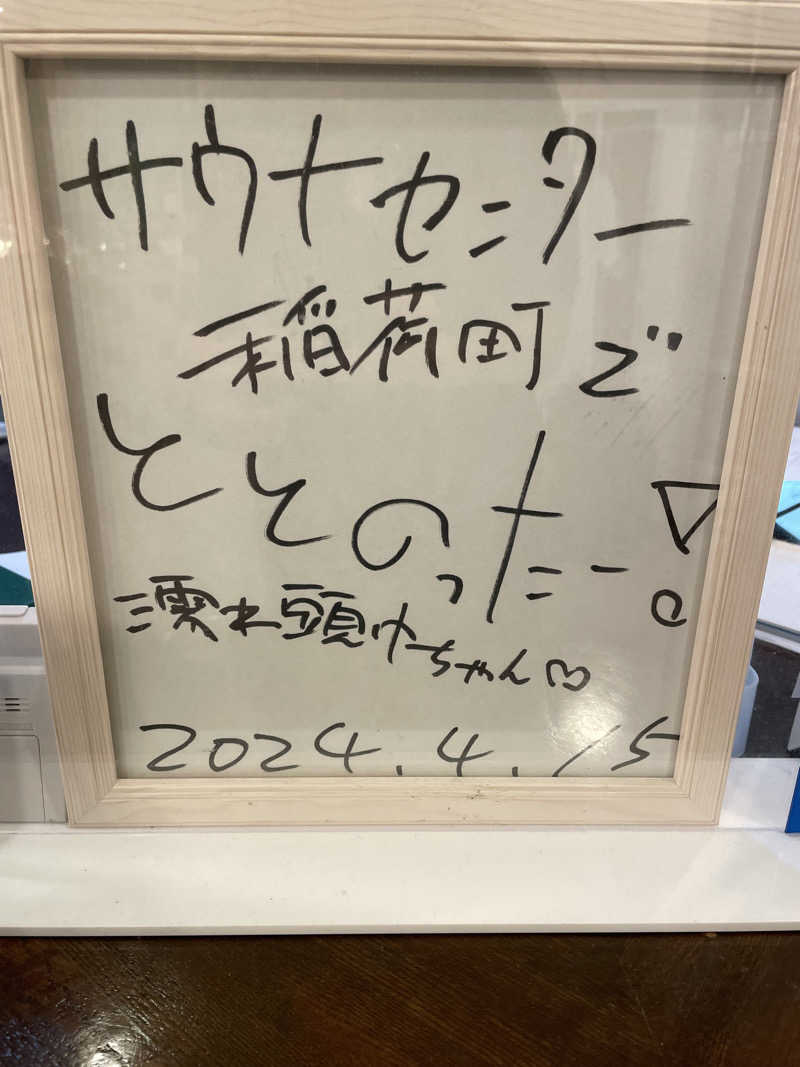 サウナセンター
稲荷町で
ととのったー!
濡れ頭巾ちゃん♡
2024.4.15